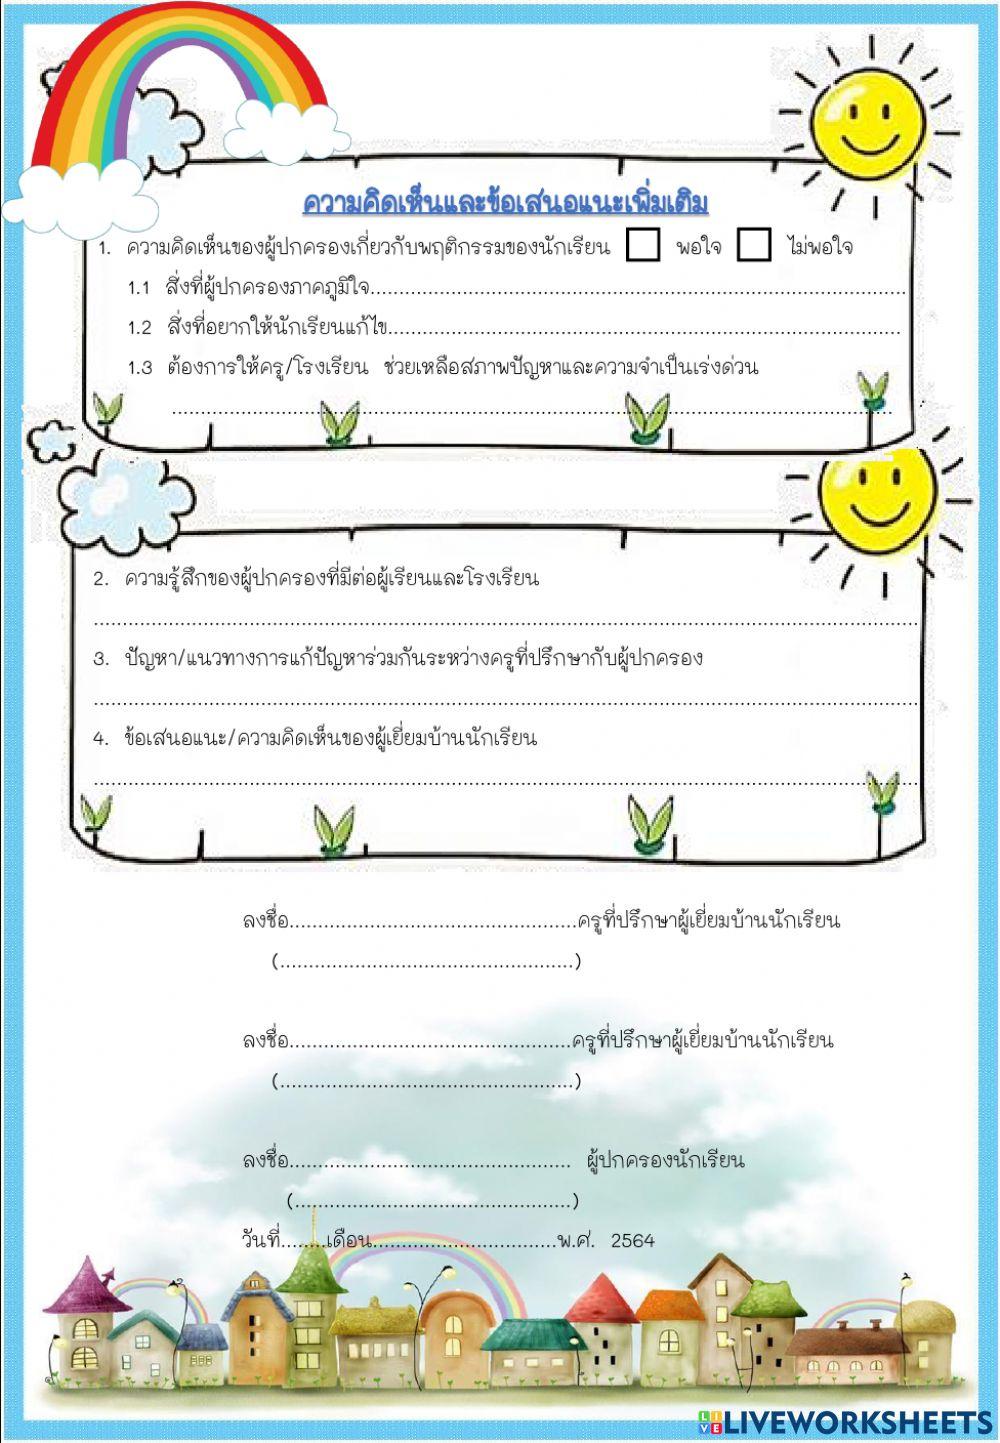 ความคิดเห็นและข้อเสนอแนะเพิ่มเติม
1. ความคิดเห็นของผู้ปกครองเกี่ยวกับพฤติกรรมของนักเรียน ☐ พอใจ ☐ ไม่พอใจ
1.1 สิ่งที่ผู้ปกครองภาคภูมิใจ........................................................................................
1.2 สิ่งที่อยากให้นักเรียนแก้ไข.....................................................................................
1.3 ต้องการให้ครู/โรงเรียน ช่วยเหลือสภาพปัญหาและความจำเป็นเร่งด่วน
........................................................................................................................
2. ความรู้สึกของผู้ปกครองที่มีต่อผู้เรียนและโรงเรียน
........................................................................................................................
3. ปัญหา/แนวทางการแก้ปัญหาร่วมกันระหว่างครูที่ปรึกษากับผู้ปกครอง
........................................................................................................................
4. ข้อเสนอแนะ/ความคิดเห็นของผู้เยี่ยมบ้านนักเรียน
........................................................................................................................
ลงชื่อ..................................................ครูที่ปรึกษาผู้เยี่ยมบ้านนักเรียน
(...................................................)
ลงชื่อ.................................................ครูที่ปรึกษาผู้เยี่ยมบ้านนักเรียน
(...................................................)
ลงชื่อ................................................. ผู้ปกครองนักเรียน
(................................................)
วันที่........เดือน................................พ.ศ. 2564
LIVEWORKSHEETS